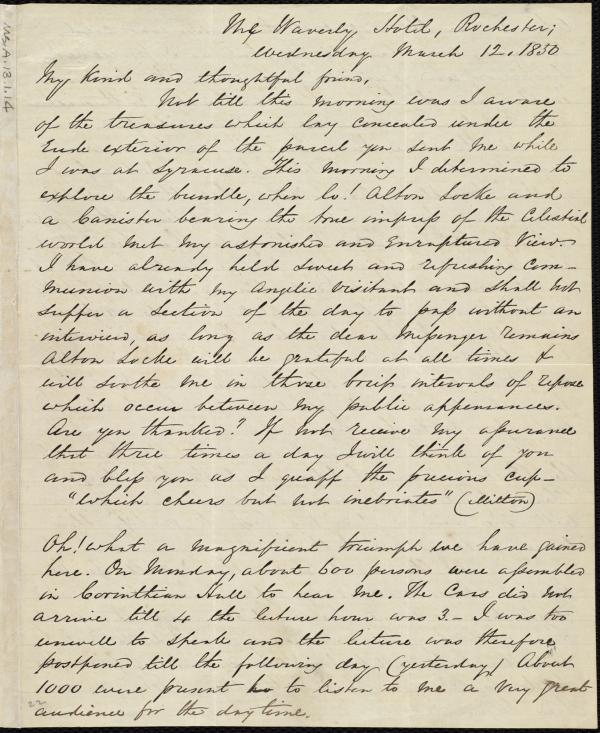 Ms.A.1.3.1.14
The Waverly Hotel, Rochester;
Wednesday March 12. 1850
My kind and thoughtful friend,
Not till this morning was I aware
of the treasures which lay concealed under the
rude exterior of the parcel you sent me while
I was at Syracuse. This morning I determined to
explore the bundle, when lo! Alton Locke and
a Canister bearing the true impress of the Celestial
world met my astonished and enraptured view.
I have already held sweet and refreshing com-
munion with my Angelic visitant and shall not
suffer a section of the day to pass without an
interview, as long as the dear Messenger remains
Alton Locke will be grateful at all times &
will soothe me in those brief intervals of repose
which occur between my public appearances.
Are you thanked? If not receive my assurance
that three times a day I will think of you
and bless you as I quaff the precious cup—
"which cheers but not inebriates" (Milton)
Oh! what a magnificent triumph we have gained
here. On Monday, about 600 persons were assembled
in Corinthian Hall to hear me. The Cars did not
arrive till 4 the lecture hour was 3.— I was too
unwell to speak and the lecture was therefore
postponed till the following day (yesterday) About
1000 were present to listen to me a very great
audience for the daytime.